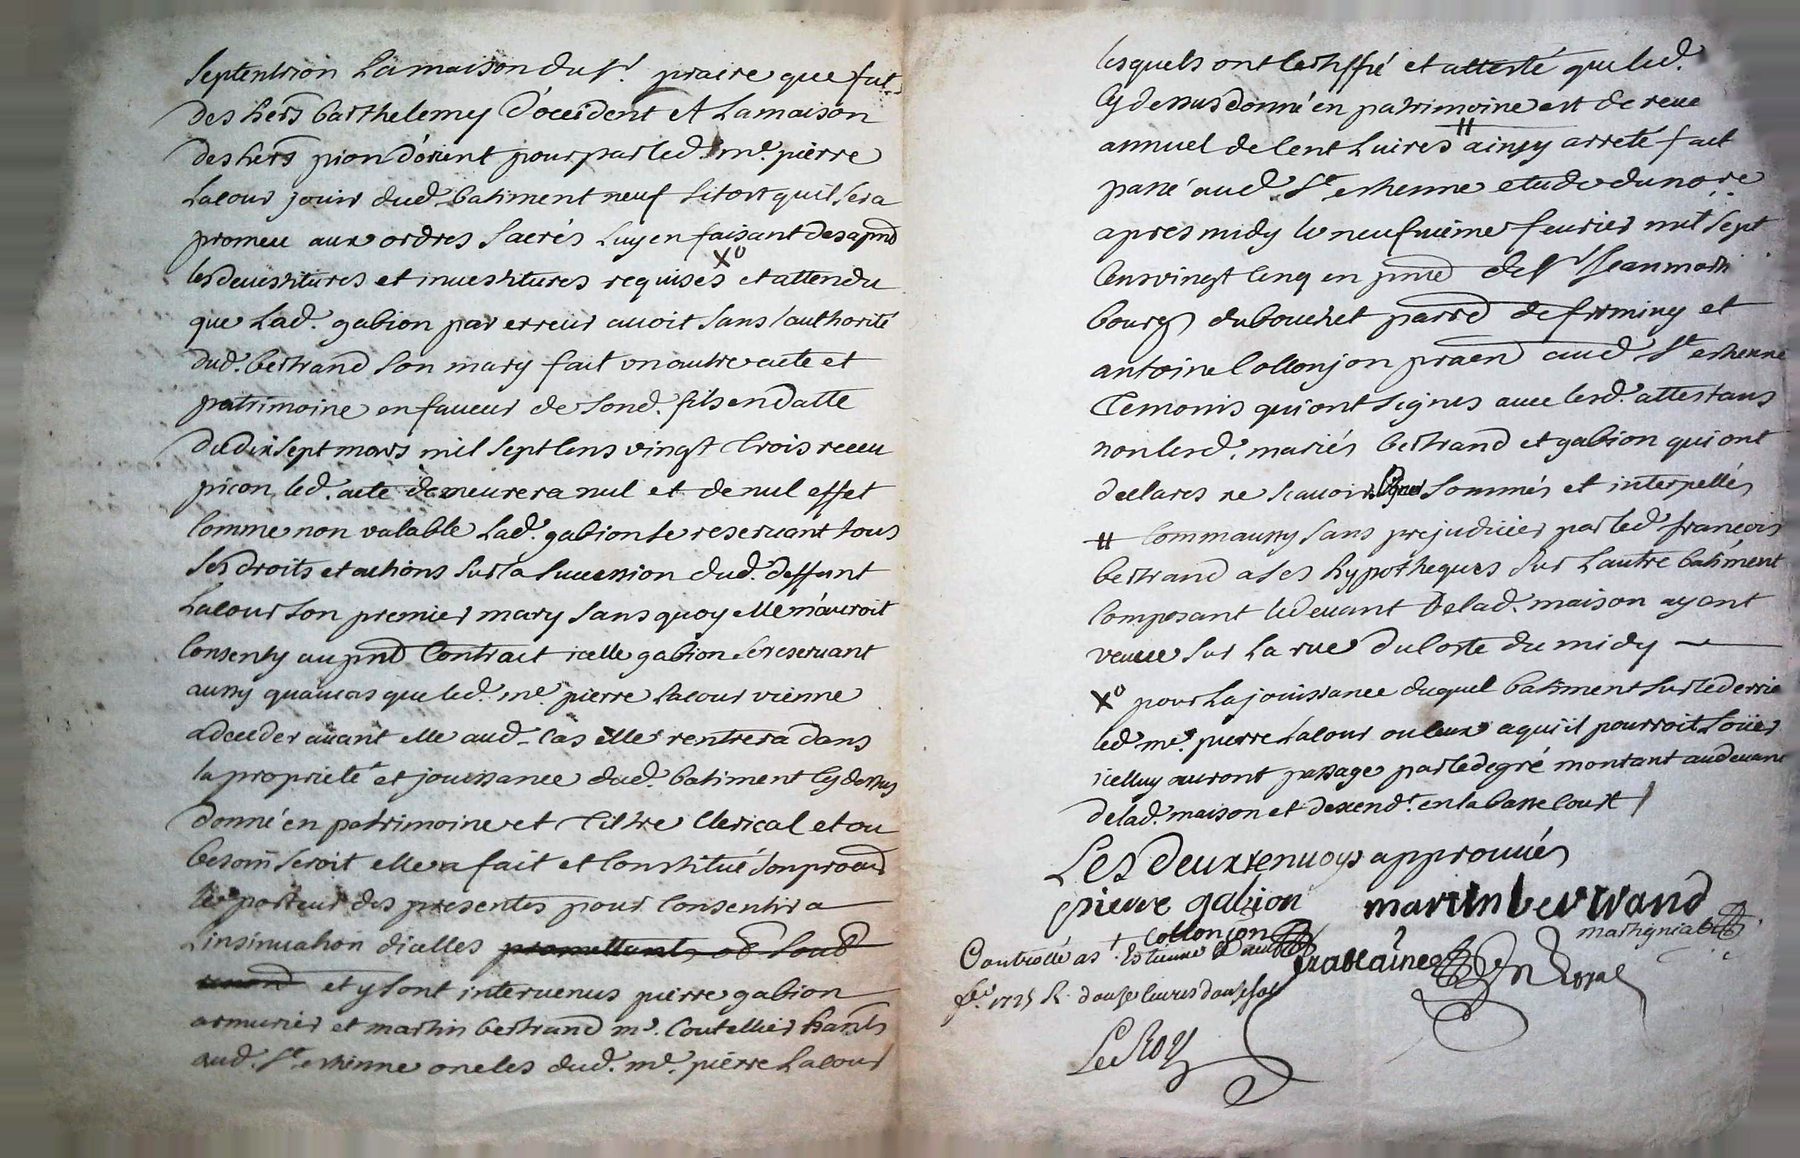 septentrion La maison du Sr. praire que fut
des hers barthelemy d'occident et La maison
des hers pion d'orient pour par led. me. pierre
Lacour jouir dud. batiment neuf sitost quil sera
promeu aux ordres sacrés luy en faisant des apnd
les devestitures et investitures requises Xo et attendu
que Lad. gabion par erreur avoit sans l'authorité
dud. bertrand son mary fait un autre acte et
patrimoine en faveur de sond. fils en datte
du dix sept mars mil sept cens vingt trois receu
picon led. acte demeurera nul et de nul effet
comme non valable Lad. gabion se reservant tous
ses droits et actions sur la succession dud. deffunt
Lacour son premier mary sans quoy elle n'auroit
consenty au pnt contrait icelle gabion se reservant
aussy qu'au cas que led. me. pierre Lacour vienne
a deceder avant elle aud. cas elle rentrera dans
la proprieté et jouissance dud. batiment cy dessus
donné en patrimoine et tiltre clerical et ou
besoin seroit elle a fait et constitué son procur
le porteur des presentes pour consentir a
L'insinuation dicelles promettant
et y sont intervenus pierre gabion
armurier et martin bertrand me. coutellier hants
aud. St. estienne oncles dud. me. pierre Lacour
lesquels ont certiffié et attesté que led.
cy dessus donné en patrimoine est de reve
annuel de cent livres # ainsy arreté fait
passé aud. St. estienne etude du nore
apres midy le neufvieme fevrier mil sept
cens vingt cinq en pnce de Sr. Jean
bourg du bouchet parrd de firminy et
antoine Collonjon praen aud. St. estienne
temoins qui ont signes avec lesd. attestans
non lesd. mariés bertrand et gabion qui ont
declares ne scavoir signer sommés et interpellés
# comm aussy sans prejudicier par led. françois
bertrand a ses hypotheques sur l'autre batiment
composant le devant de lad. maison ayant
veue sur la rue du coste du midy
Xo pour la jouissance duquel batiment sur le derrie
led. me. pierre Lacour ou ceux a qui il pourroit loüer
icelluy auront passage par le degré montant au devant
de lad. maison et descendt. en la basse court
Les deux renvoys approuvés
pierre gabion martin bertrand
collonjon
Controllé a St. Estienne le
fer. 1725 R. douze livres douze sols
Le Roy